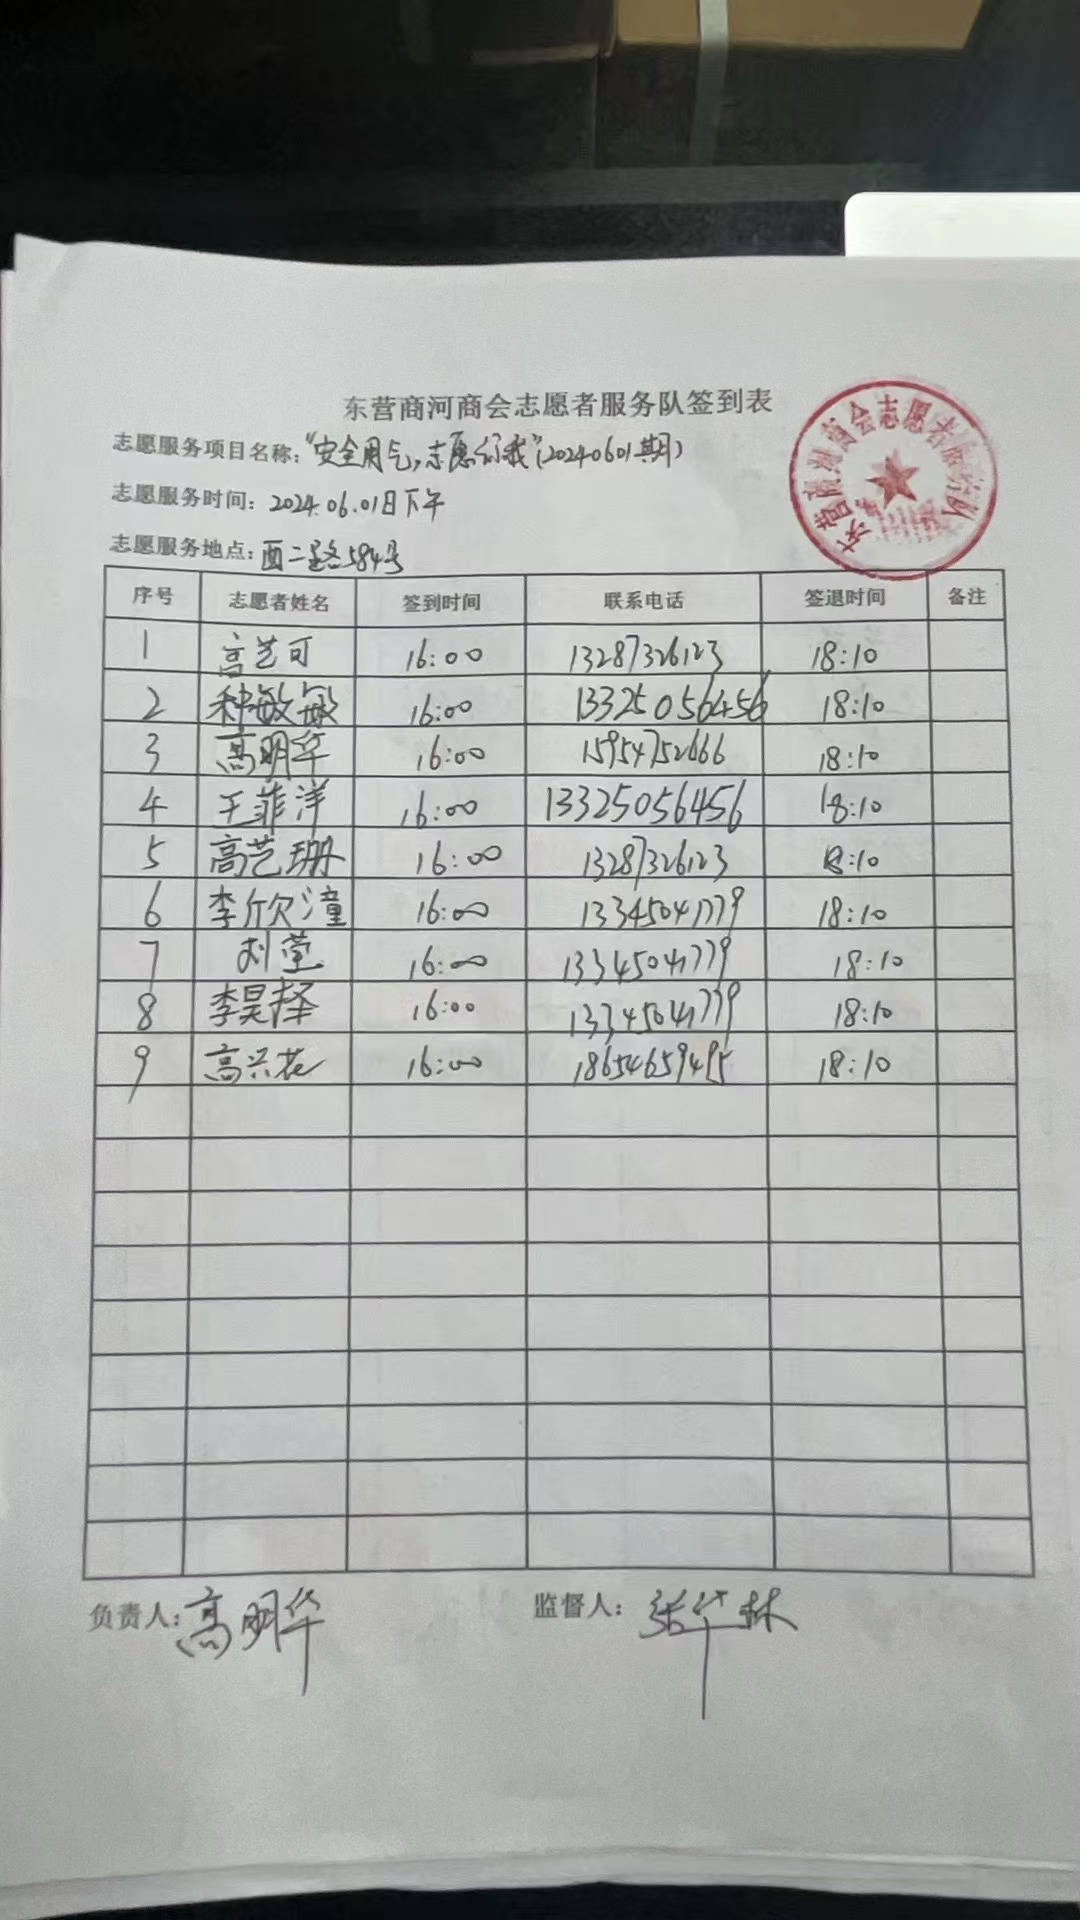 东营商河商会志愿者服务队签到表
志愿服务项目名称："安全用气,志愿你我"(20240601期)
志愿服务时间：2024.06.01日下午
志愿服务地点：西二路584号
东营商河商会志愿者服务队
序号 志愿者姓名 签到时间 联系电话 签退时间 备注
1 高艺可 16:00 13287326123 18:10
2 种敏敏 16:00 13325056456 18:10
3 高明华 16:00 15954752666 18:10
4 王菲洋 16:00 13325056456 18:10
5 高艺珊 16:00 13287326123 18:10
6 李欣潼 16:00 13345041779 18:10
7 刘莹 16:00 13345041779 18:10
8 李昊择 16:00 13345041779 18:10
9 高兴花 16:00 18654659495 18:10
负责人：高明华 监督人：张华林